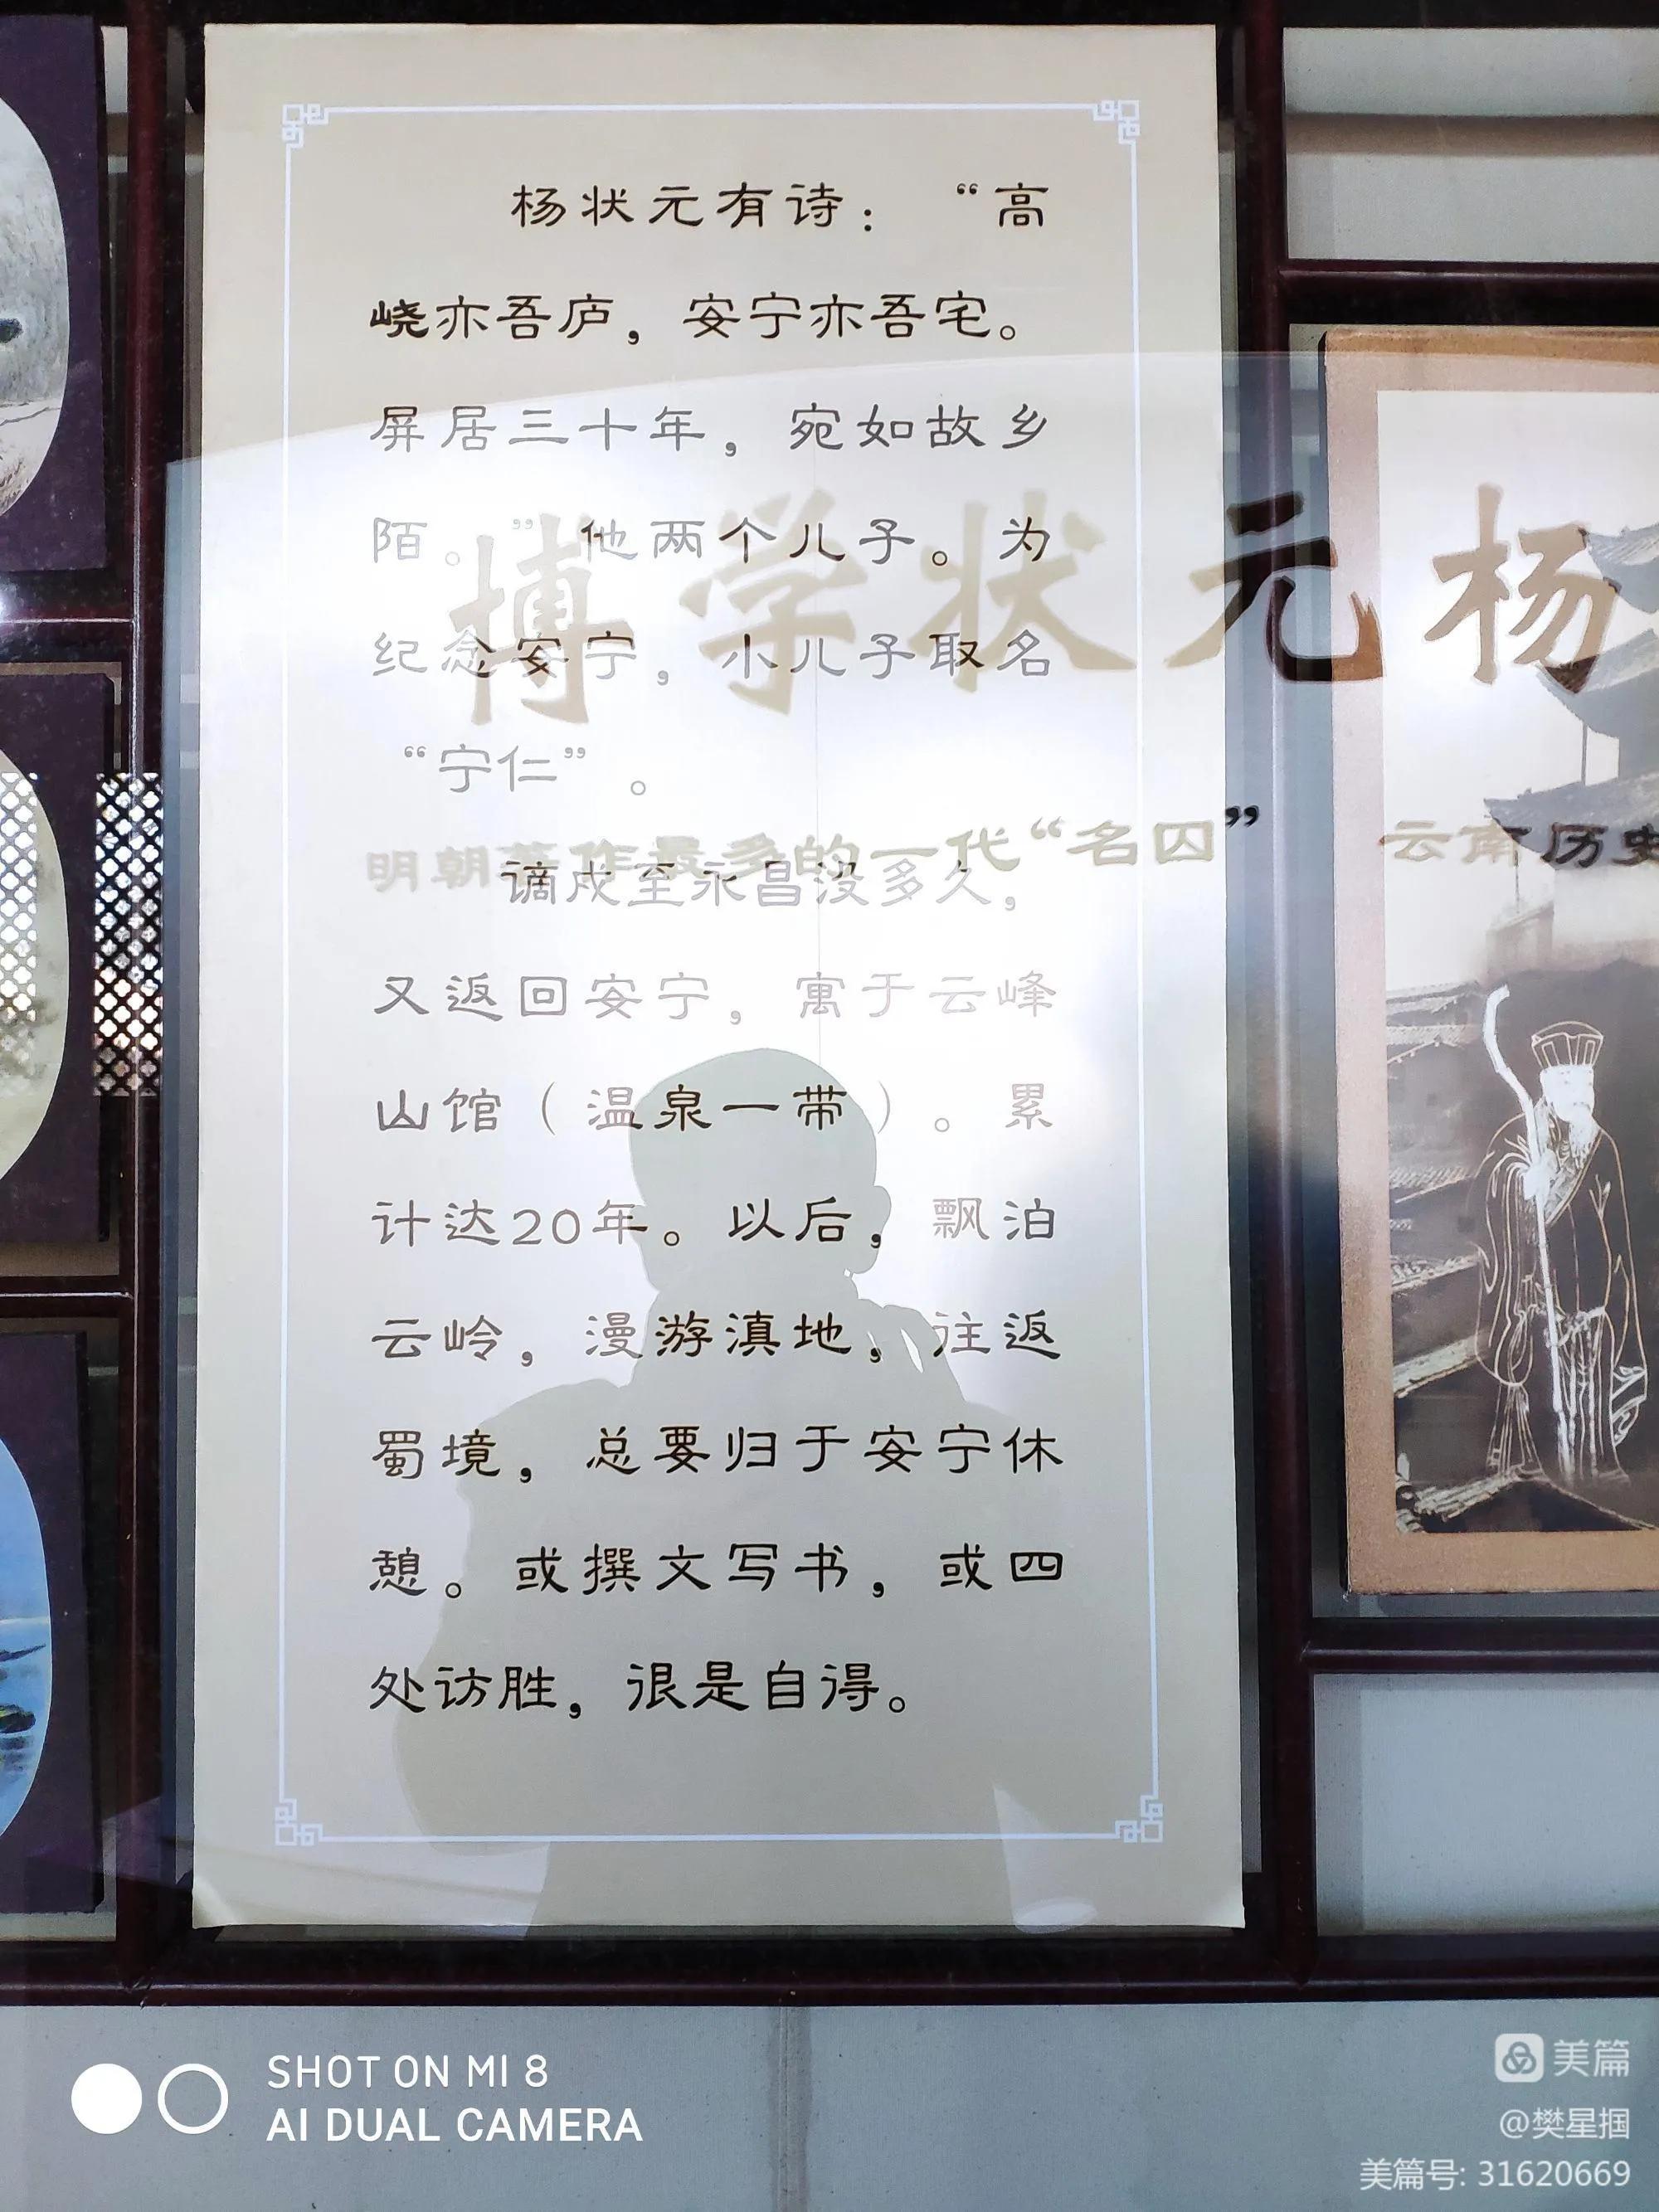 杨状元有诗：“高
峣亦吾庐，安宁亦吾宅。
屏居三十年，宛如故乡
陌。”他两个儿子。为
纪念安宁，小儿子取名
“宁仁”。
谪戍至永昌没多久，
又返回安宁，寓于云峰
山馆（温泉一带）。累
计达20年。以后，飘泊
云岭，漫游滇地，往返
蜀境，总要归于安宁休
憩。或撰文写书，或四
处访胜，很是自得。
博学状元杨
明朝著作最多的一代“名囚” 云南历史
SHOT ON MI 8
AI DUAL CAMERA
美篇
@樊星掴
美篇号: 31620669